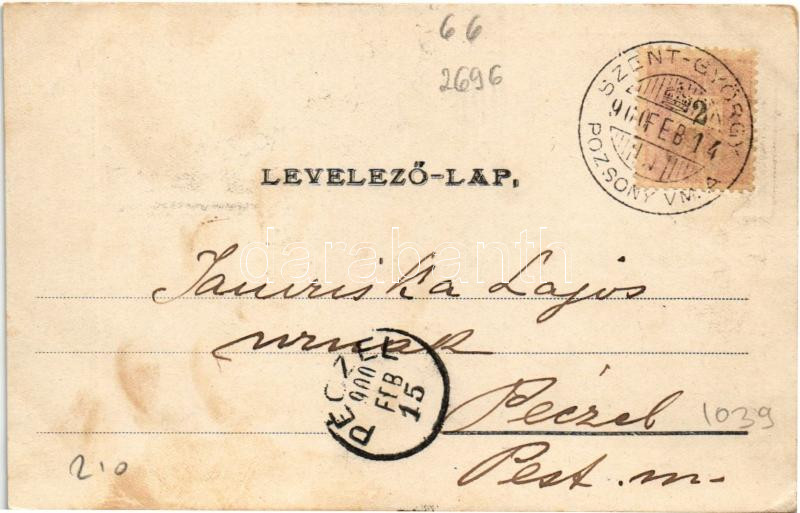 66
2696
SZENT-GYÖRGY
900 FEB 14
POZSONY VM. A
2
LEVELEZŐ-LAP.
darabanth
Lajos
urnak
PÉCZEL
900
FEB
15
Péczel
1039
Pest. m-
210